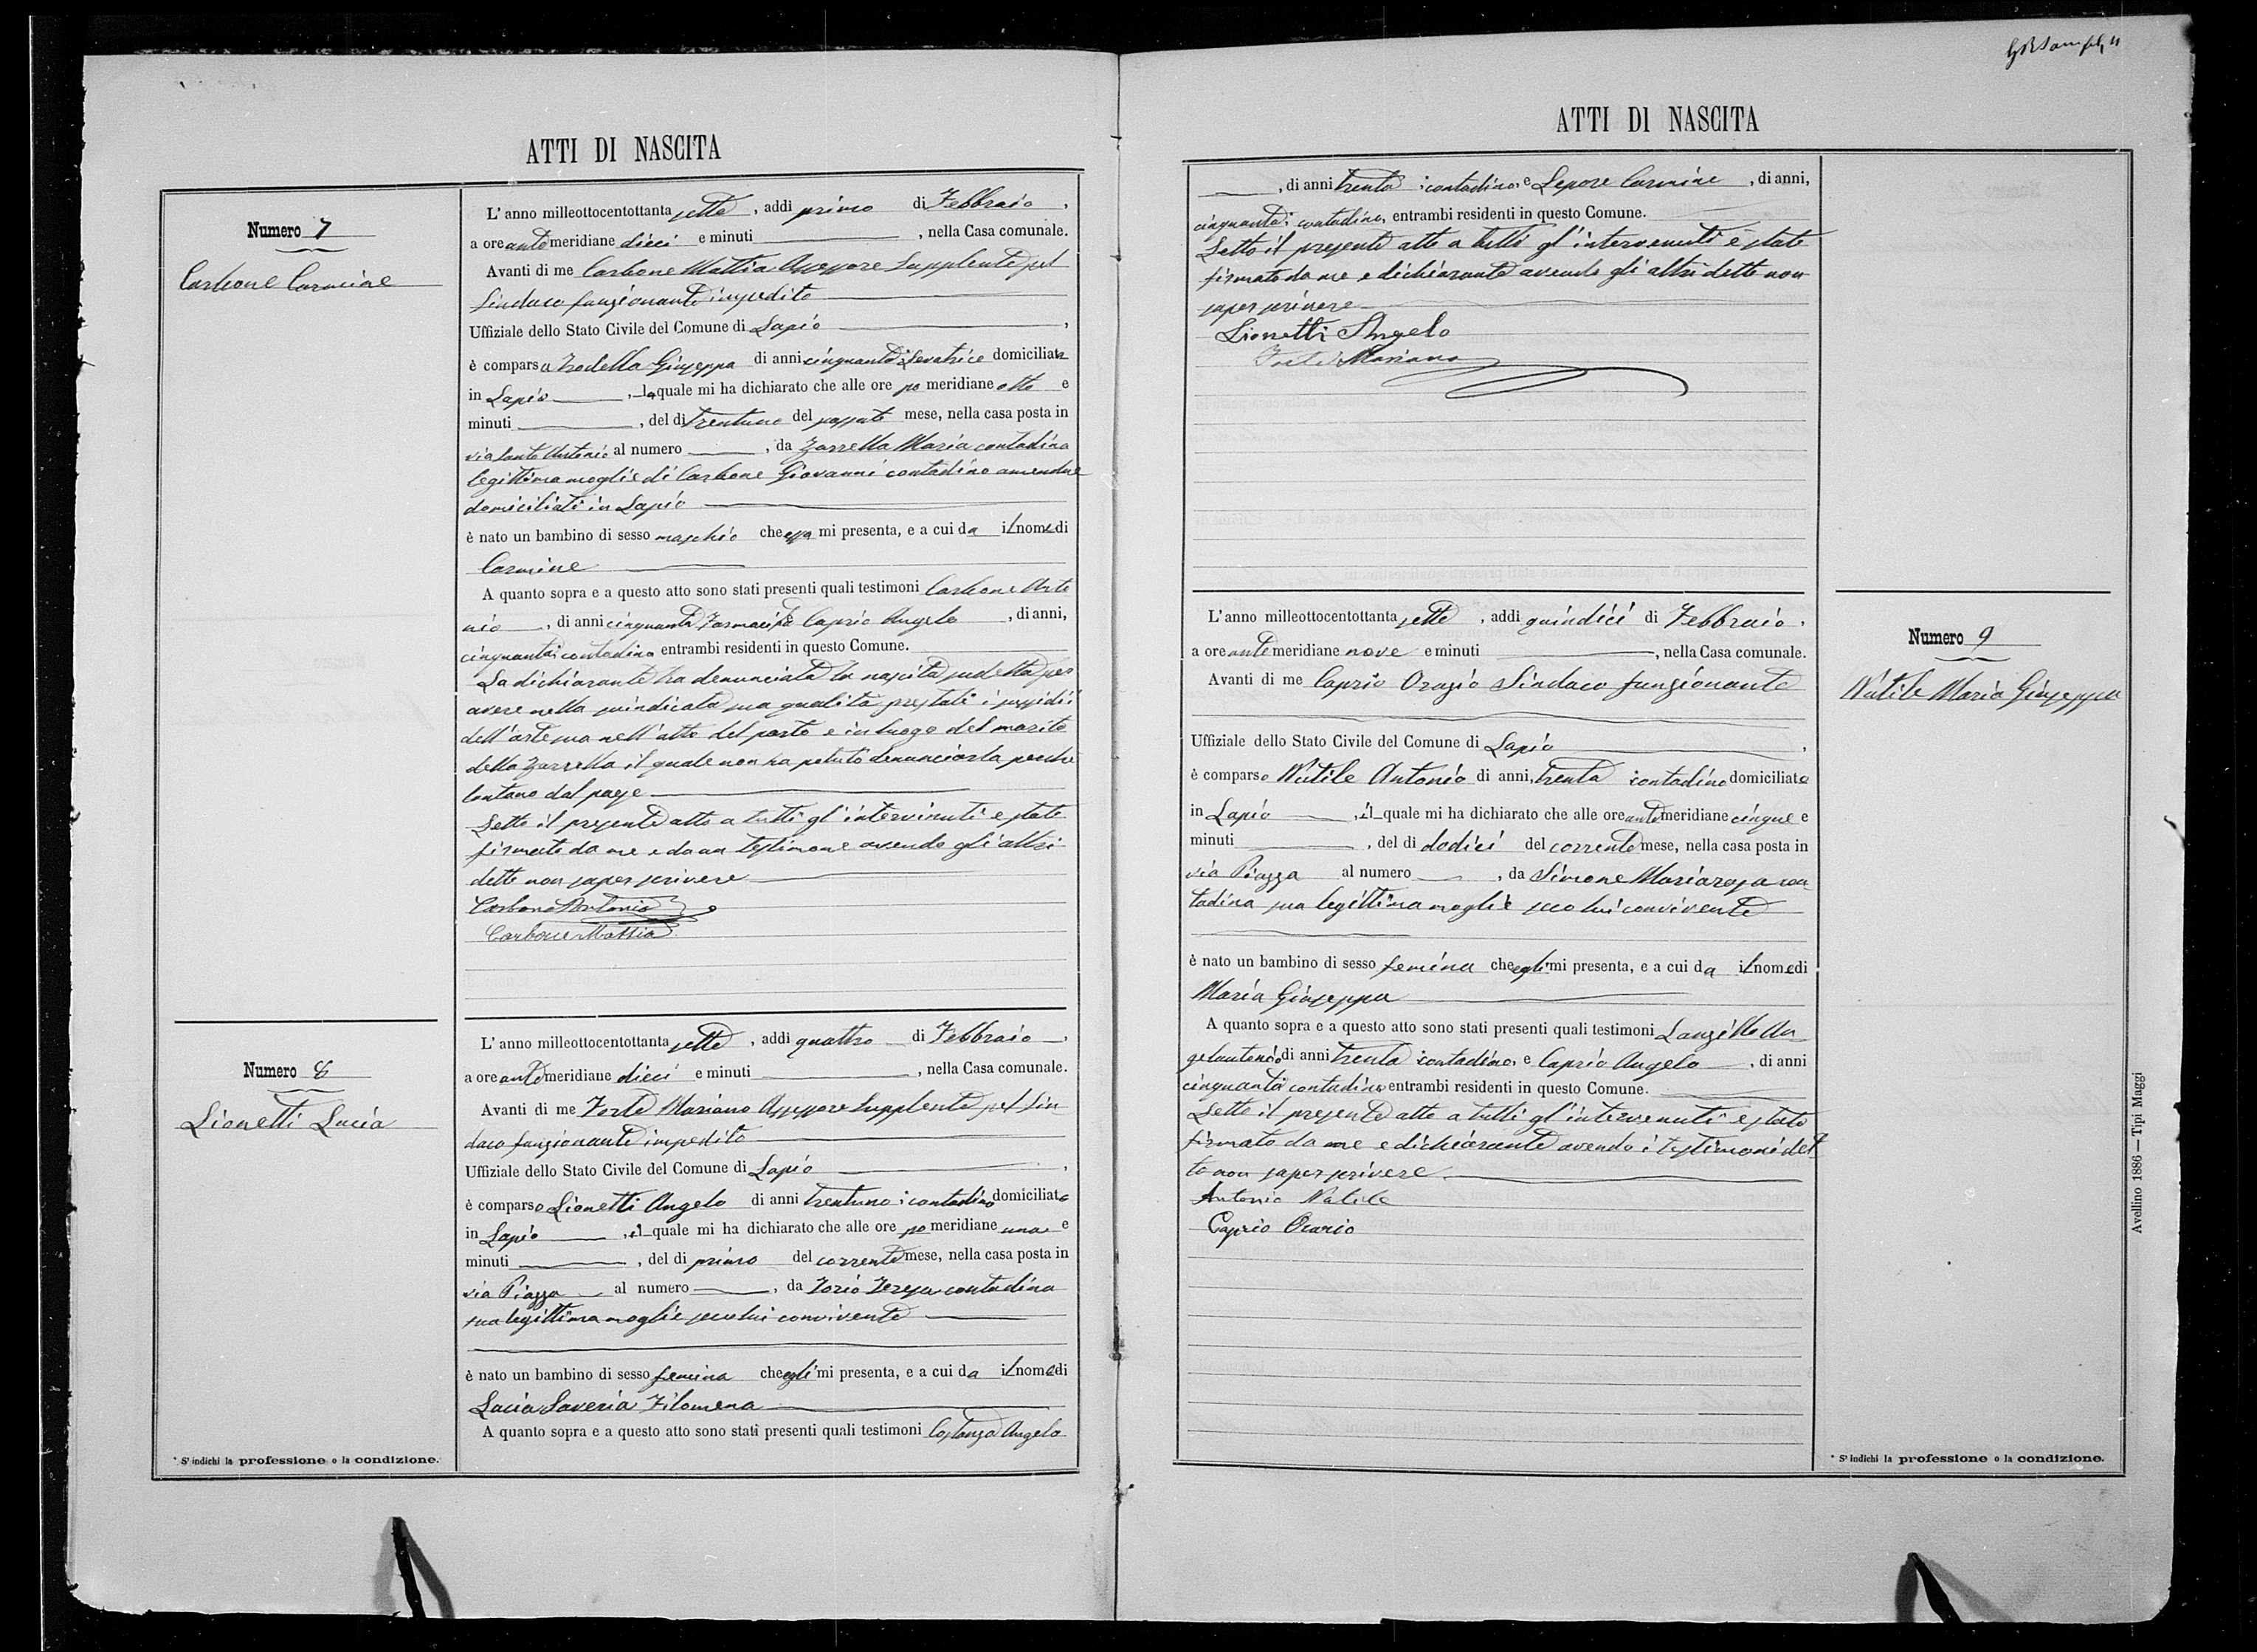 ATTI DI NASCITA
Numero 7
Carbone Carmine
L'anno milleottocentottanta sette, addì primo di Febbraio,
a ore antemeridiane dieci e minuti, nella Casa comunale.
Avanti di me Carbone Mattia Assessore Supplente pel
Sindaco funzionante impedito
Uffiziale dello Stato Civile del Comune di Lapio,
è comparsa Giuseppa di anni cinquanta; levatrice domiciliata
in Lapio, la quale mi ha dichiarato che alle ore pomeridiane otto e
minuti, del dì trentuno del passato mese, nella casa posta in
via Santo Antonio al numero, da Zarrella Maria contadina
legittima moglie di Carbone Giovanni contadino amendue
domiciliati in Lapio
è nato un bambino di sesso maschio che essa mi presenta, e a cui da il nome di
Carmine
A quanto sopra e a questo atto sono stati presenti quali testimoni Carbone Anto
nio, di anni cinquanta Farmacista e Caprio Angelo, di anni,
cinquanta; contadino entrambi residenti in questo Comune.
La dichiarante ha denunciata la nascita sudetta per
avere nella suindicata sua qualità prestati i sussidii
dell'arte sua nell'atto del parto e in luogo del marito
della Zarrella il quale non ha potuto denunciarla perchè
lontano dal paese
Letto il presente atto a tutti gl'intervenuti è stato
firmato da me e da un testimone avendo gli altri
detto non saper scrivere
Carbone Antonio
Carbone Mattia
Numero 8
Lionetti Lucia
L'anno milleottocentottanta sette, addì quattro di Febbraio,
a ore antemeridiane dieci e minuti, nella Casa comunale.
Avanti di me Forte Mariano Assessore Supplente pel Sin
daco funzionante impedito
Uffiziale dello Stato Civile del Comune di Lapio,
è comparso Lionetti Angelo di anni trentuno; contadino domiciliato
in Lapio, il quale mi ha dichiarato che alle ore pomeridiane una e
minuti, del dì primo del corrente mese, nella casa posta in
via Piazza al numero, da Iorio Teresa contadina
sua legittima moglie seco lui convivente
è nato un bambino di sesso femina che egli mi presenta, e a cui da il nome di
Lucia Saveria Filomena
A quanto sopra e a questo atto sono stati presenti quali testimoni Costanzo Angelo
* S'indichi la professione o la condizione.
ATTI DI NASCITA
, di anni trenta; contadino, e Lepore Carmine, di anni,
cinquanta; contadino, entrambi residenti in questo Comune.
Letto il presente atto a tutti gl'intervenuti è stato
firmato da me e dichiarante avendo gli altri detto non
saper scrivere
Lionetti Angelo
Forte Mariano
Numero 9
Natile Maria Giuseppa
L'anno milleottocentottanta sette, addì quindici di Febbraio,
a ore antemeridiane nove e minuti, nella Casa comunale.
Avanti di me Caprio Orazio Sindaco funzionante
Uffiziale dello Stato Civile del Comune di Lapio,
è comparso Natile Antonio di anni, trenta contadino domiciliato
in Lapio, il quale mi ha dichiarato che alle ore antemeridiane cinque e
minuti, del dì dodici del corrente mese, nella casa posta in
via Piazza al numero, da Simone Mariarosa con
tadina sua legittima moglie seco lui convivente
è nato un bambino di sesso femina che egli mi presenta, e a cui da il nome di
Maria Giuseppa
A quanto sopra e a questo atto sono stati presenti quali testimoni Lanzillo An
gelantonio di anni trenta contadino, e Caprio Angelo, di anni
cinquanta contadino entrambi residenti in questo Comune.
Letto il presente atto a tutti gl'intervenuti è stato
firmato da me e dichiarante avendo i testimoni det
to non saper scrivere.
Antonio Natile
Caprio Orazio
* S'indichi la professione o la condizione.
Avellino 1886 — Tipi Maggi